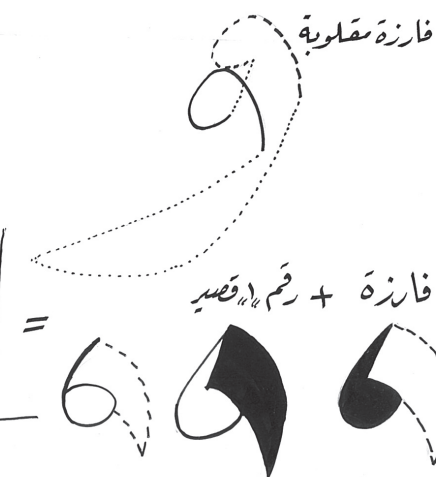 فارزة مقلوبة
فارزة + رقم "١" قصير
=